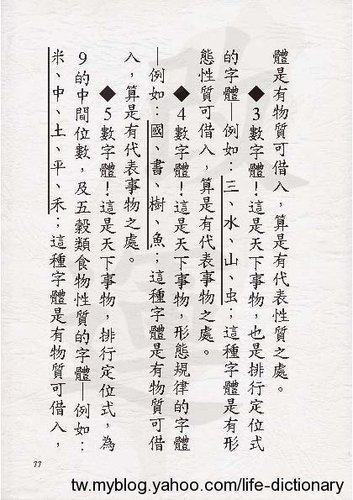 體是有物質可借入，算是有代表性質之處。
◆3數字體！這是天下事物，也是排行定位式
的字體—例如：三、水、山、虫；這種字體是有形
態性質可借入，算是有代表事物之處。
◆4數字體！這是天下事物，形態規律的字體
—例如：國、書、樹、魚；這種字體是有物質可借
入，算是有代表事物之處。
◆5數字體！這是天下事物，排行定位式，為
9的中間位數，及五穀類食物性質的字體—例如：
米、中、土、平、禾；這種字體是有物質可借入，
77
tw.myblog.yahoo.com/life-dictionary